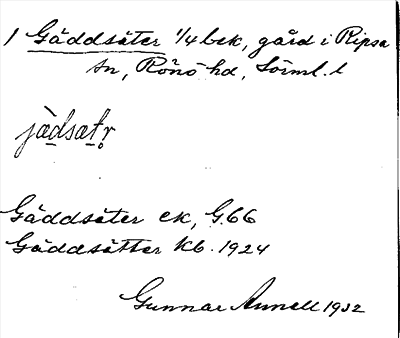 1 Gäddsäter 1/4 bek, gård i Ripsa
sn, Rönö hd, Sörml. l
jädsætr
Gäddsäter ek, G.66
Gäddsätter Kb. 1924
Gunnar Annell 1932